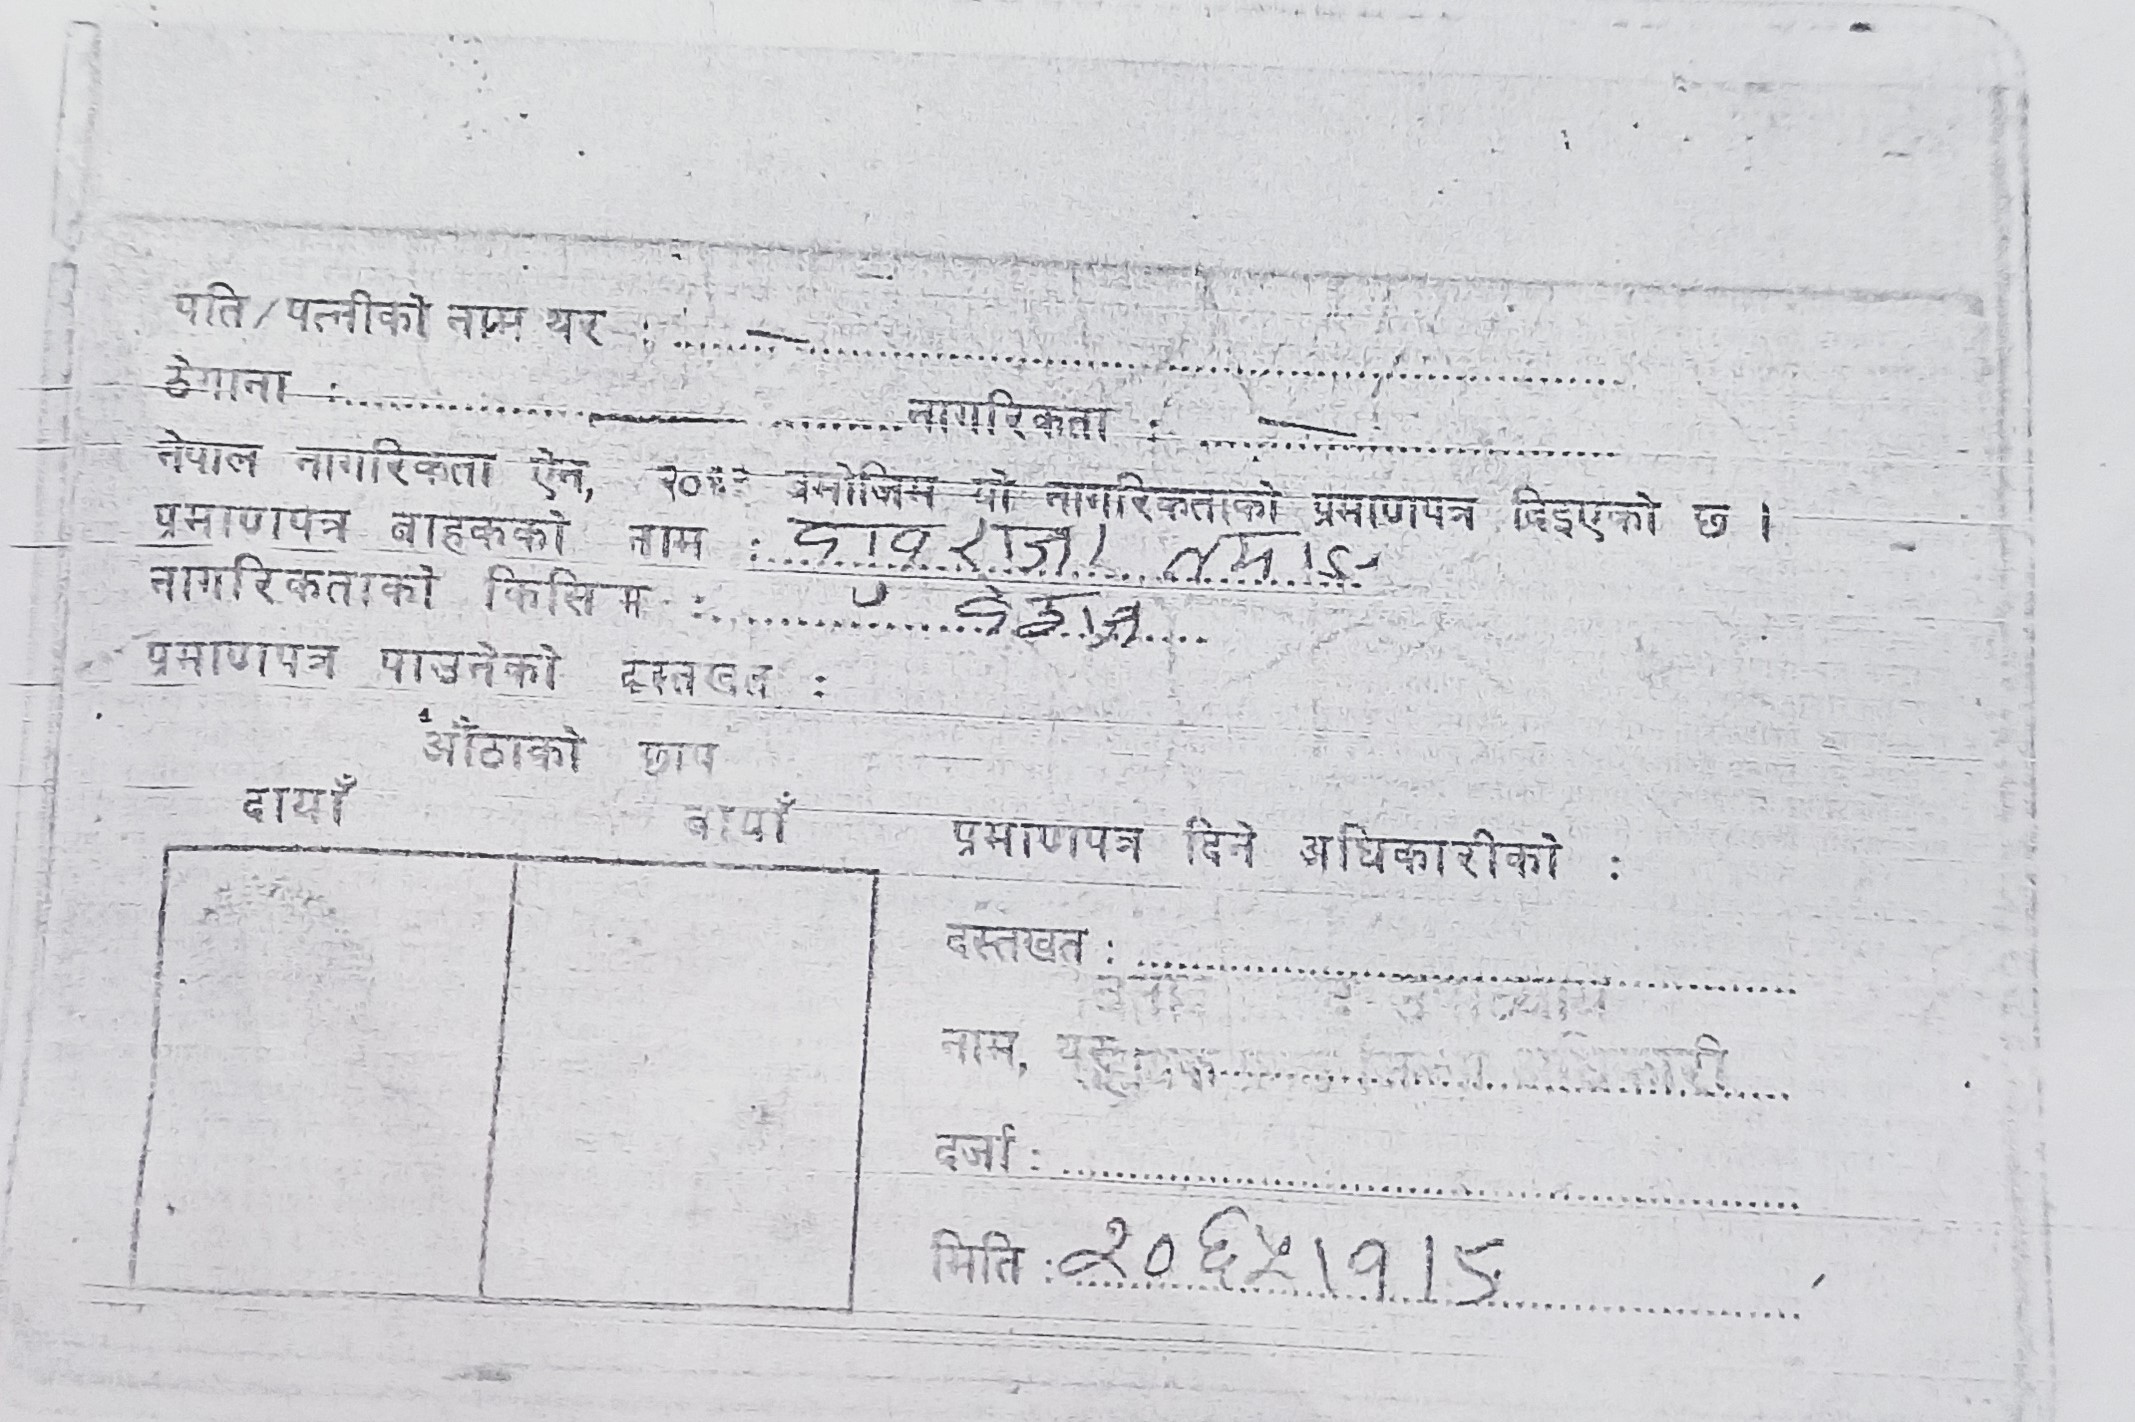 पति/पत्नीको नाम थर : —
ठेगाना : — नागरिकता : —
नेपाल नागरिकता ऐन, बमोजिम यो नागरिकताको प्रमाणपत्र दिइएको छ ।
प्रमाणपत्र बाहकको नाम :
नागरिकताको किसिम : वंशज
प्रमाणपत्र पाउनेको दस्तखत :
औंठाको छाप
दायाँ बायाँ
प्रमाणपत्र दिने अधिकारीको :
दस्तखत :
नाम, थर :
दर्जा :
मिति : २०६५।१।८